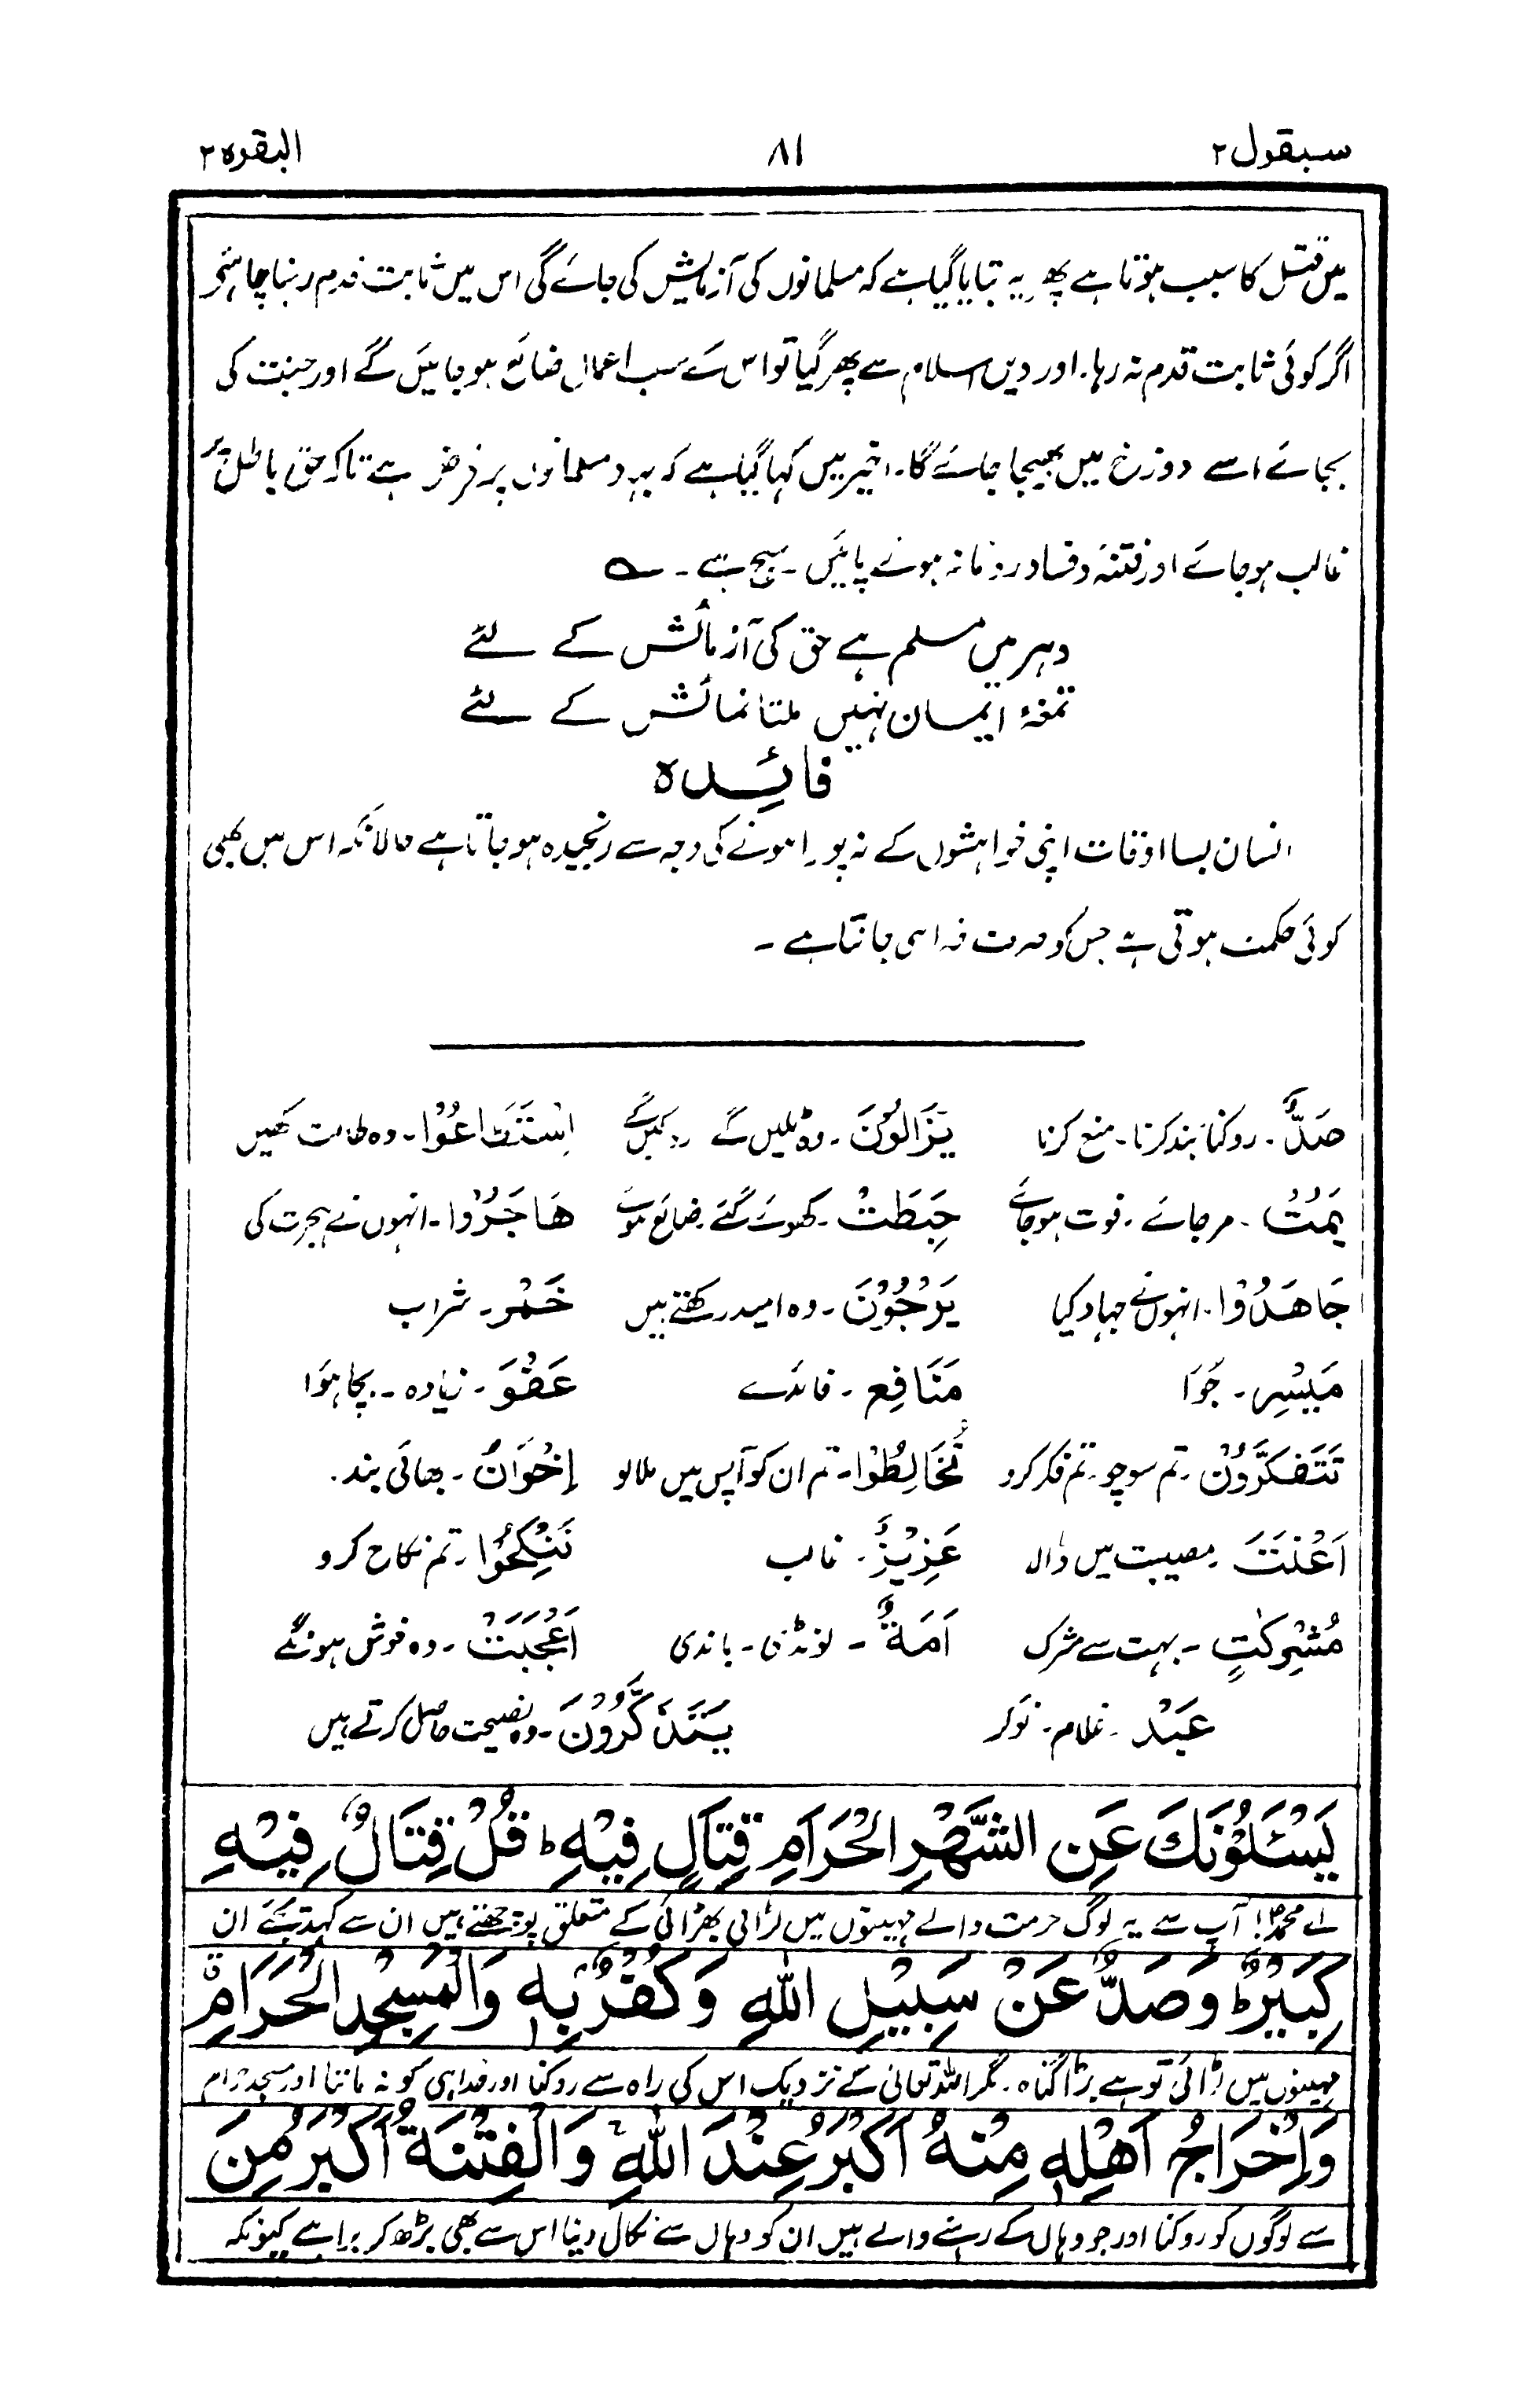 سیقول ۲ ۸۱ البقرہ ۲
میں قتل کا سبب ہوتا ہے پھر یہ بتایا گیا ہے کہ مسلمانوں کی آزمایش کی جائے گی اس میں ثابت قدم رہنا چاہئے
اگر کوئی ثابت قدم نہ رہا۔ اور دین اسلام سے پھر گیا تو اس کے سب اعمال ضائع ہو جائیں گے اور جنت کی
بجائے اسے دوزخ میں بھیجا جائے گا۔ اخیر میں کہا گیا ہے کہ مسلمانوں پر فرض ہے تاکہ حق باطل پر
غالب ہو جائے اور فتنہ و فساد رونما نہ ہونے پائیں۔ سچ ہے۔ ؎
دہر میں مسلم ہے حق کی آزمائش کے لئے
تمغۂ ایمان نہیں ملتا نمائش کے لئے
فائِدہ
انسان بسا اوقات اپنی خواہشوں کے نہ پورا ہونے کی وجہ سے رنجیدہ ہو جاتا ہے حالانکہ اس میں بھی
کوئی حکمت ہوتی ہے جس کو صرف خدا ہی جانتا ہے ۔
صَدٌّ۔ روکنا بند کرنا۔ منع کرنا یَزَالُوْنَ۔ وہ ٹلیں گے رکیں گے اِسْتَطَاعُوْا۔ وہ طاقت رکھیں
یَمُتْ۔ مر جائے۔ فوت ہو جائے حَبِطَتْ۔ کھوئے گئے۔ ضائع ہوئے ھَاجَرُوْا۔ انہوں نے ہجرت کی
جَاھَدُوْا۔ انہوں نے جہاد کیا یَرْجُوْنَ۔ وہ امید رکھتے ہیں خَمْر۔ شراب
مَیْسِر۔ جُوَا مَنَافِع۔ فائدے عَفْوَ۔ زیادہ۔ بچا ہوا
تَتَفَکَّرُوْنَ۔ تم سوچو۔ تم فکر کرو تُخَالِطُوْا۔ تم ان کو آپس میں ملا لو اِخْوَانٌ۔ بھائی بند۔
اَعْنَتَ۔ مصیبت میں ڈالا عَزِیْزٌ۔ غالب تَنْکِحُوْا۔ تم نکاح کرو
مُشْرِکٰتٍ۔ بہت سے مشرک اَمَۃٌ۔ لونڈی۔ باندی اَعْجَبَتْ۔ وہ خوش ہونگے
عَبْد۔ غلام۔ نوکر یَتَذَکَّرُوْنَ۔ وہ نصیحت حاصل کرتے ہیں
یَسْئَلُوْنَكَ عَنِ الشَّهْرِ الْحَرَامِ قِتَالٍ فِیْهِ ؕ قُلْ قِتَالٌ فِیْهِ
اے محمدؐ! آپ سے یہ لوگ حرمت والے مہینوں میں لڑائی بھڑائی کے متعلق پوچھتے ہیں ان سے کہدیجئے ان
كَبِیْرٌ ؕ وَصَدٌّ عَنْ سَبِیْلِ اللهِ وَكُفْرٌۢ بِهٖ وَالْمَسْجِدِ الْحَرَامِ ۗ
مہینوں میں لڑائی تو ہے بڑا گناہ۔ مگر اللہ تعالیٰ کے نزدیک اس کی راہ سے روکنا اور خدا ہی کو نہ ماننا اور مسجد حرام
وَاِخْرَاجُ اَهْلِهٖ مِنْهُ اَكْبَرُ عِنْدَ اللهِ ۚ وَالْفِتْنَةُ اَكْبَرُ مِنَ
سے لوگوں کو روکنا اور جو وہاں کے رہنے والے ہیں ان کو وہاں سے نکال دینا اس سے بھی بڑھ کر برا ہے کیونکہ